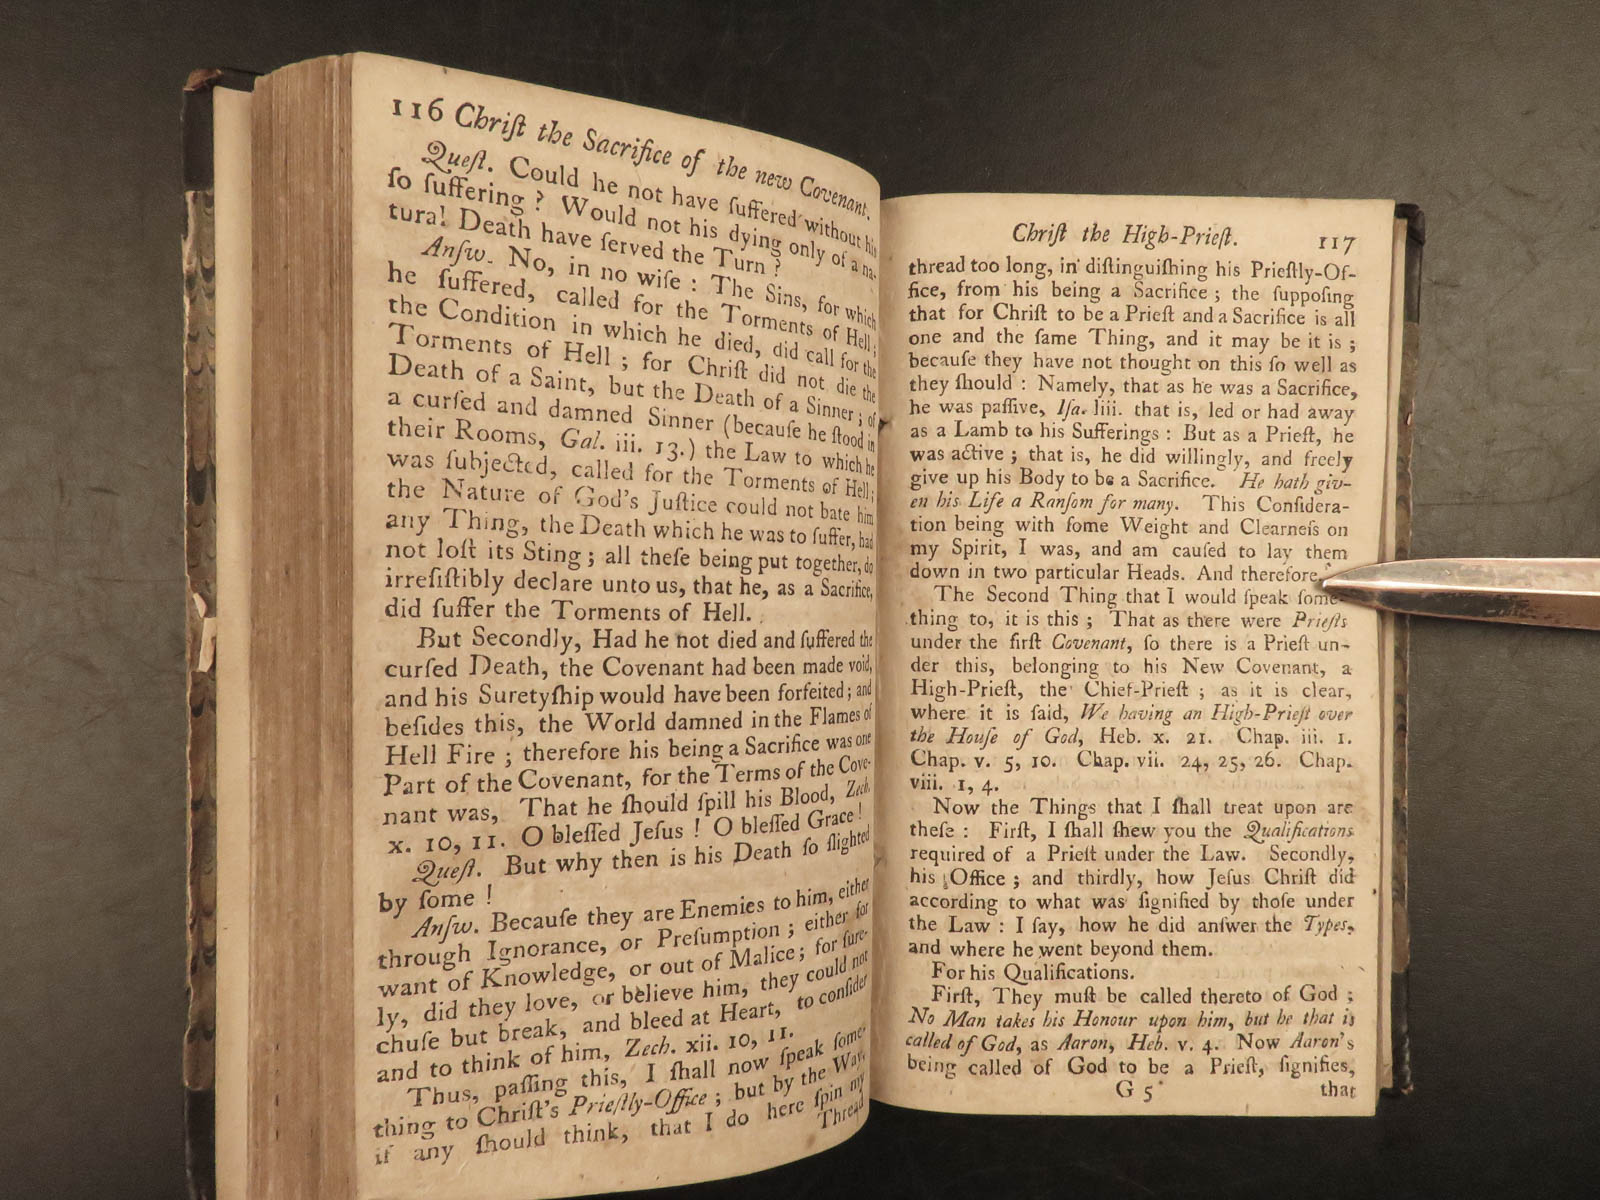 116 Chriſt the Sacrifice of the new Covenant.
Queſt. Could he not have ſuffered without his
ſo ſuffering? Would not his dying only of a na-
tural Death have ſerved the Turn?
Anſw. No, in no wiſe: The Sins, for which
he ſuffered, called for the Torments of Hell;
the Condition in which he died, did call for the
Torments of Hell; for Chriſt did not die the
Death of a Saint, but the Death of a Sinner; of
a curſed and damned Sinner (becauſe he ſtood in
their Rooms, Gal. iii. 13.) the Law to which he
was ſubjected, called for the Torments of Hell;
the Nature of God's Juſtice could not bate him
any Thing, the Death which he was to ſuffer, had
not loſt its Sting; all theſe being put together, do
irreſiſtibly declare unto us, that he, as a Sacrifice,
did ſuffer the Torments of Hell.
But Secondly, Had he not died and ſuffered the
curſed Death, the Covenant had been made void,
and his Suretyſhip would have been forfeited; and
beſides this, the World damned in the Flames of
Hell Fire; therefore his being a Sacrifice was one
Part of the Covenant, for the Terms of the Cove-
nant was, That he ſhould ſpill his Blood, Zech.
x. 10, 11. O bleſſed Jeſus! O bleſſed Grace!
Queſt. But why then is his Death ſo ſlighted
by ſome!
Anſw. Becauſe they are Enemies to him, either
through Ignorance, or Preſumption; either for
want of Knowledge, or out of Malice; for ſure-
ly, did they love, or believe him, they could not
chuſe but break, and bleed at Heart, to conſider
and to think of him, Zech. xii. 10, 11.
Thus, paſſing this, I ſhall now ſpeak ſome-
thing to Chriſt's Prieſtly-Office; but by the Way,
if any ſhould think, that I do here ſpin my
Thread
Chriſt the High-Prieſt. 117
thread too long, in diſtinguiſhing his Prieſtly-Of-
fice, from his being a Sacrifice; the ſuppoſing
that for Chriſt to be a Prieſt and a Sacrifice is all
one and the ſame Thing, and it may be it is;
becauſe they have not thought on this ſo well as
they ſhould: Namely, that as he was a Sacrifice,
he was paſſive, Iſa. liii. that is, led or had away
as a Lamb to his Sufferings: But as a Prieſt, he
was active; that is, he did willingly, and freely
give up his Body to be a Sacrifice. He hath giv-
en his Life a Ranſom for many. This Conſidera-
tion being with ſome Weight and Clearneſs on
my Spirit, I was, and am cauſed to lay them
down in two particular Heads. And therefore
The Second Thing that I would ſpeak ſome-
thing to, it is this; That as there were Prieſts
under the firſt Covenant, ſo there is a Prieſt un-
der this, belonging to his New Covenant, a
High-Prieſt, the Chief-Prieſt; as it is clear,
where it is ſaid, We having an High-Prieſt over
the Houſe of God, Heb. x. 21. Chap. iii. 1.
Chap. v. 5, 10. Chap. vii. 24, 25, 26. Chap.
viii. 1, 4.
Now the Things that I ſhall treat upon are
theſe: Firſt, I ſhall ſhew you the Qualifications
required of a Prieſt under the Law. Secondly,
his Office; and thirdly, how Jeſus Chriſt did
according to what was ſignified by thoſe under
the Law: I ſay, how he did anſwer the Types,
and where he went beyond them.
For his Qualifications.
Firſt, They muſt be called thereto of God;
No Man takes his Honour upon him, but he that is
called of God, as Aaron, Heb. v. 4. Now Aaron's
being called of God to be a Prieſt, ſignifies,
G 5 that